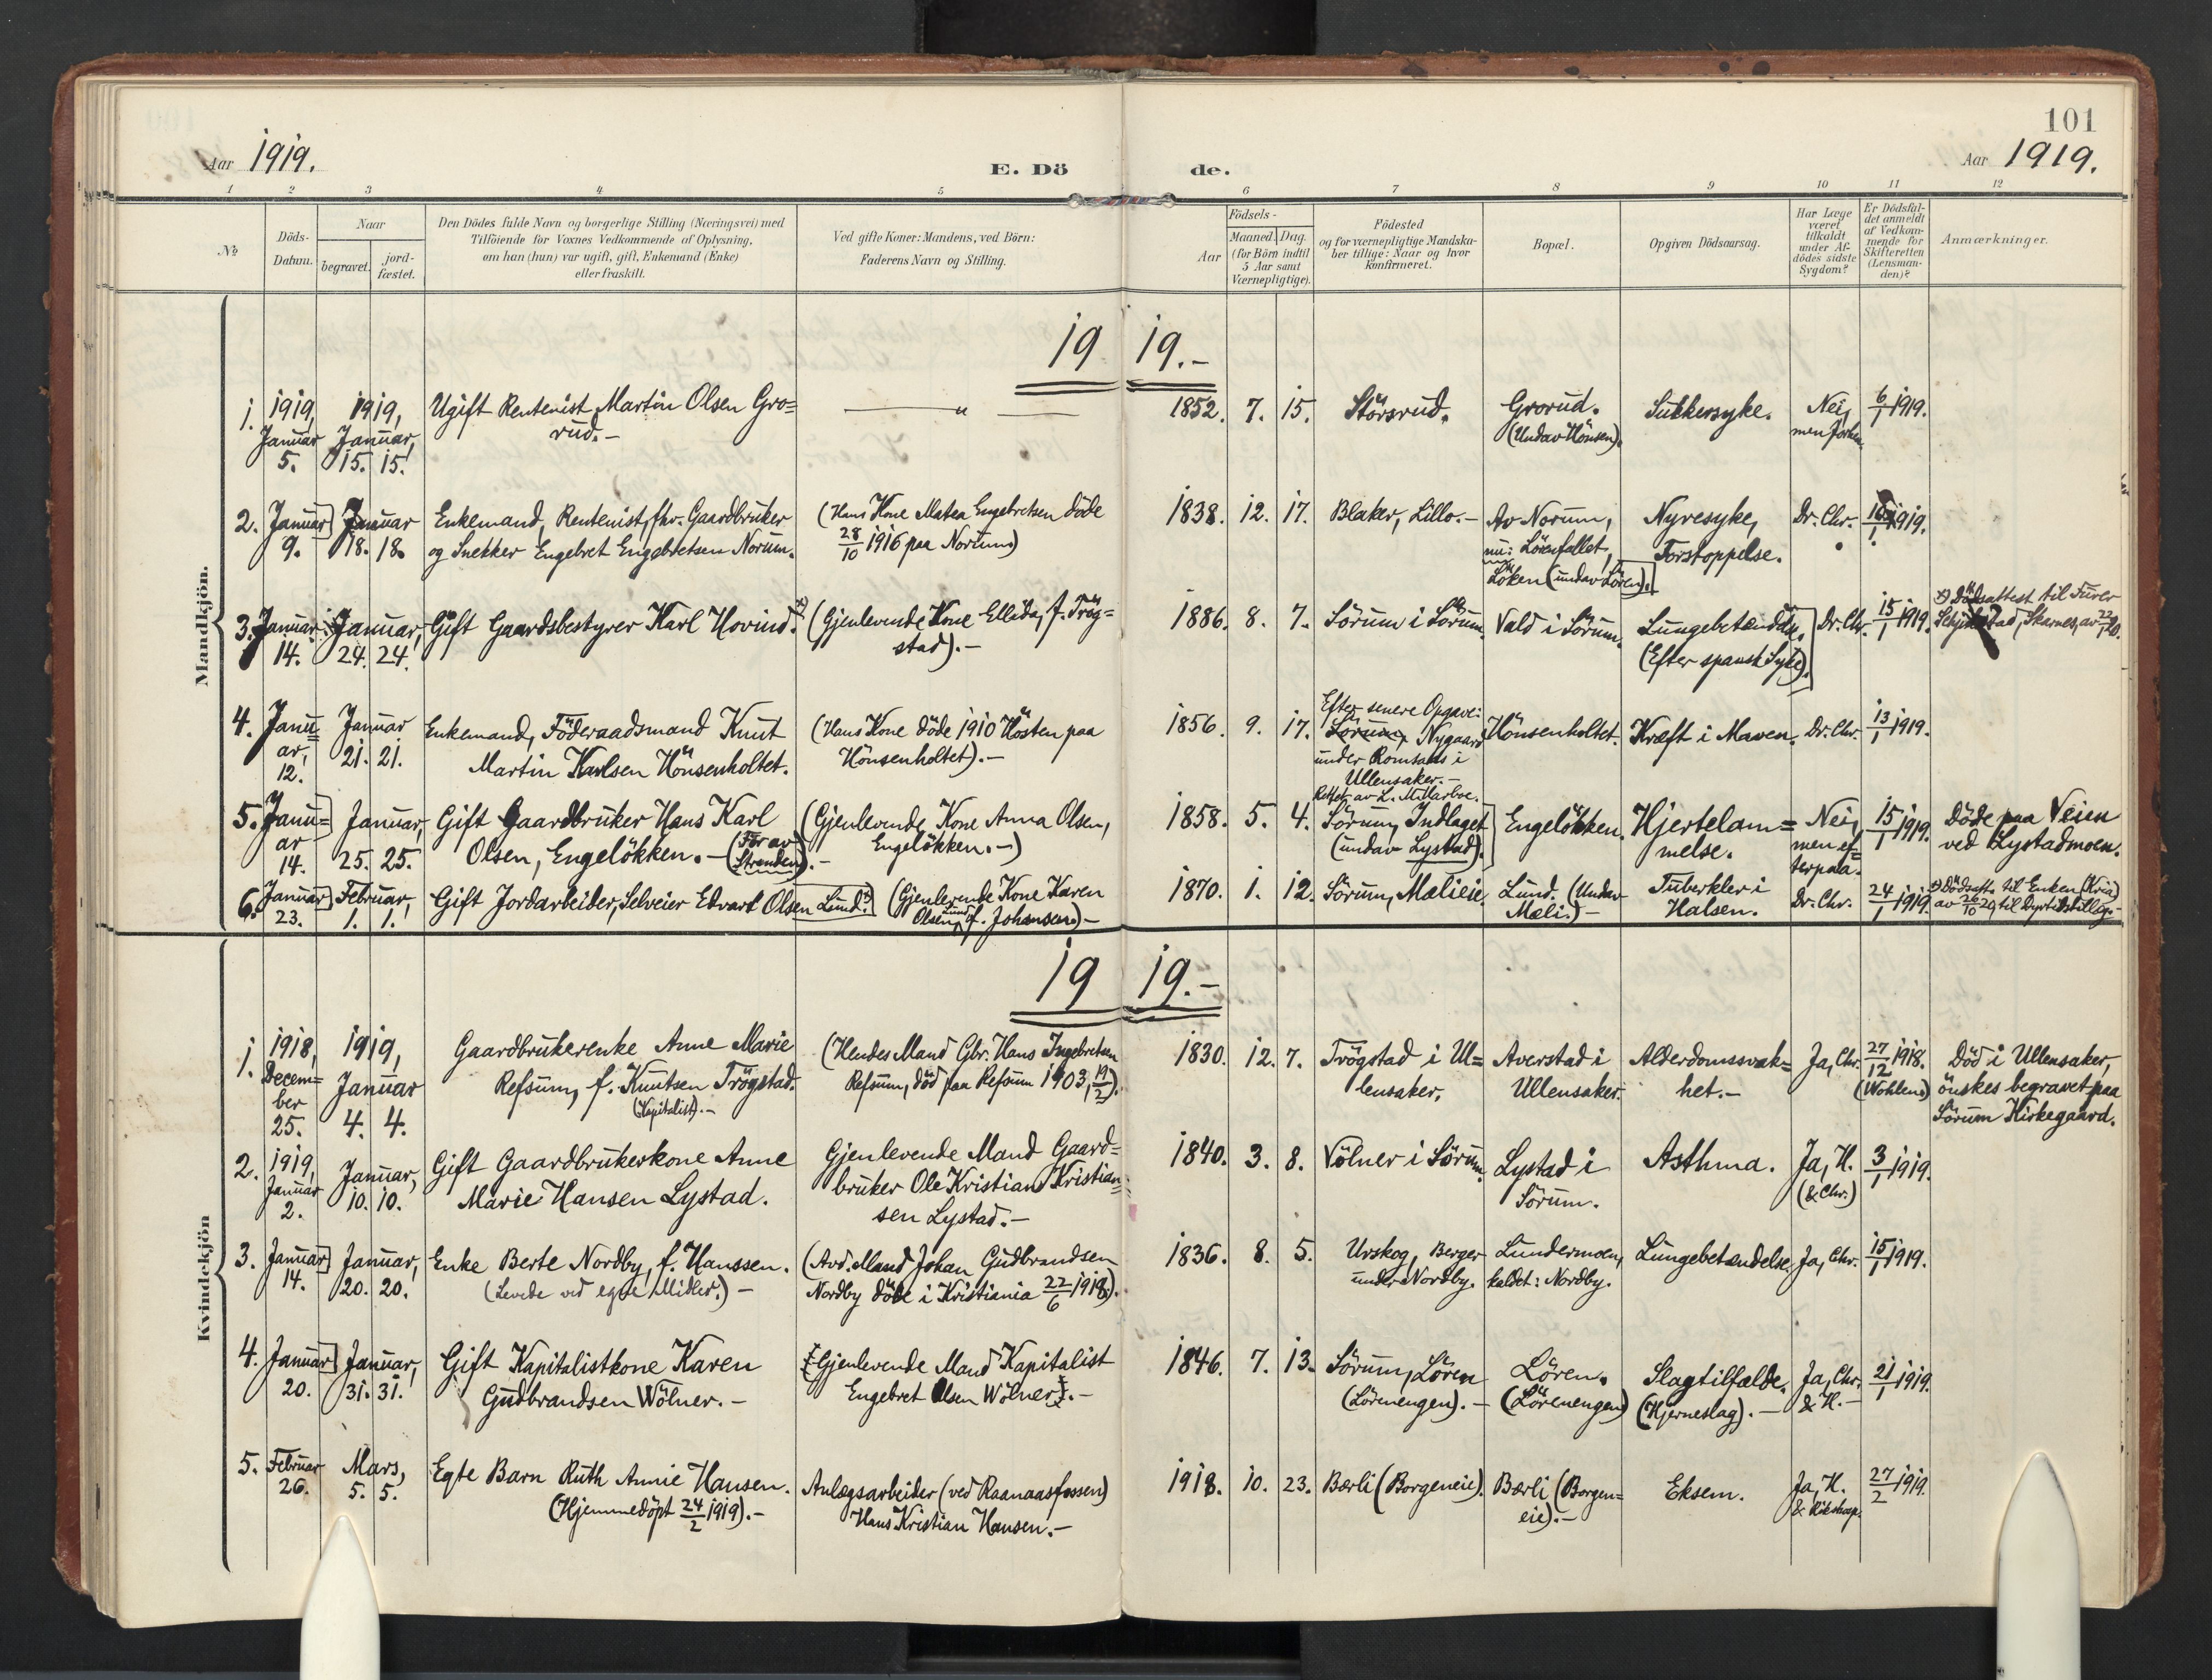 101
Aar 1919.
E. Dö de.
Aar 1919.
1 2 3 4 5 6 7 8 9 10 11 12
No
Döds-
Datum.
Naar
begravet.
jord-
fæstet.
Den Dödes fulde Navn og borgerlige Stilling (Næringsvei) med
Tilföiende for Voxnes Vedkommende af Oplysning,
om han (hun) var ugift, gift, Enkemand (Enke)
eller fraskilt.
Ved gifte Koner: Mandens, ved Börn:
Faderens Navn og Stilling.
Födsels-
Aar
Maaned. Dag.
(for Börn indtil
5 Aar samt
Værnepligtige).
Födested
og for værnepligtige Mandska-
ber tillige: Naar og hvor
konfirmeret.
Bopæl.
Opgiven Dödsaarsag.
Har Læge
været
tilkaldt
under Af-
dödes sidste
Sygdom?
Er Dödsfal-
det anmeldt
af Vedkom-
mende for
Skifteretten
(Lensman-
den)?
Anmærkninger.
Mandkjön.
19 19.-
1.
1919,
Januar
5.
1919,
Januar,
15. 15.
Ugift Rentenist Martin Olsen Gro=
rud.-
— " —
1852. 7. 15.
Störsrud.
Grorud.
(Undav Hönsen).
Sukkersyke.
Nei,
men
6/1 1919.
2.
Januar
9.
Januar
18. 18.
Enkemand, Rentenist, fhv. Gaardbruker
og Snekker Engebret Engebretsen Norum.
(Hans Kone Matea Engebretsen döde
28/10 1916 paa Norum.)
1838. 12. 17.
Blaker, Lillo.-
Av Norum,
nu: Lörenfallet,
Löken (undav Lören).
Nyresyke,
Forstoppelse.
Dr. Chr.
1919.
3.
Januar
14.
Januar,
24. 24.
Gift Gaardsbestyrer Karl Hovind. x)
(Gjenlevende Kone Ellida, f. Trög=
stad).-
1886. 8. 7.
Sörum i Sörum.
Vald i Sörum.
Lungebetændelse.
(Efter spansk Syke).
Dr. Chr.
15/1 1919.
x) Dödsattest til Furer
Skarnes, av 22/1 20.
4.
Janu=
ar,
12.
Januar
21. 21.
Enkemand, Föderaadsmand Knut
Martin Karlsen Hönsenholtet.
(Hans Kone döde 1910 Hösten paa
Hönsenholtet).-
1856. 9. 17.
Efter senere Opgave:
Sörum, Nygaard
under Romsaas i
Ullensaker.-
Rettet av L. Millarboe.
Hönsenholtet.
Kræft i Maven.
Dr. Chr.
13/1 1919.
5.
Janu=
ar
14.
Januar,
25. 25.
Gift Gaardbruker Hans Karl
Olsen, Engelökken.- (För av
Stranden).-
(Gjenlevende Kone Anna Olsen,
Engelökken.-)
1858. 5. 4.
Sörum, Indlaget
(undav Lystad).
Engelökken.
Hjertelam=
melse.
Nei,
men ef=
terpaa.
15/1 1919.
Döde paa Veien
ved Lystadmoen.
6.
Januar
23.
Februar,
1. 1.
Gift Jordarbeider, Selveier Edvart Olsen Lund. x)
(Gjenlevende Kone Karen
Olsen Lund f. Johansen.)-
1870. 1. 12.
Sörum, Malieie.
Lund. (Undav
Mæli.)-
Tuberkler i
Halsen.
Dr. Chr.
24/1 1919.
x) Dödsatts. til Enken (Kria)
av 26/10 20, til Dyrtidstillæg.-
Kvindekjön
19 19.-
1.
1918,
Decem=
ber
25.
1919,
Januar
4. 4.
Gaardbrukerenke Anne Marie
Refsum, f. Knutsen Trögstad.
(Kapitalist).-
(Hendes Mand Gbr. Hans Ingebretsen
Refsum, död paa Refsum 1903, 19/2).
1830. 12. 7.
Trögstad i Ul=
lensaker.
Averstad i
Ullensaker.
Alderdomssvak=
het.-
Ja, Chr.
27/12 1918.
(Wohlens)
Död i Ullensaker,
önskes begravet paa
Sörum Kirkegaard.
2.
1919,
Januar
2.
Januar,
10. 10.
Gift Gaardbrukerkone Anne
Marie Hansen Lystad.
Gjenlevende Mand Gaard=
bruker Ole Kristian Kristian=
sen Lystad.-
1840. 3. 8.
Völner i Sörum.
Lystad i
Sörum.
Asthma.
Ja, H.
(& Chr.)
3/1 1919.
3.
Januar
14.
Januar,
20. 20.
Enke Berte Nordby, f. Hanssen.
(Levede ved egne Midler.)-
(Avd. Mand Johan Gudbrandsen
Nordby döde i Kristiania 22/6 1918).
1836. 8. 5.
Urskog, Berger
under Nordby.
Lundermoen,
kaldet: Nordby.
Lungebetændelse.
Ja, Chr.
15/1 1919.
4.
Januar
20.
Januar,
31. 31.
Gift Kapitalistkone Karen
Gudbrandsen Wölner.-
(Gjenlevende Mand Kapitalist
Engebret Olsen Wölner).-
1846. 7. 13.
Sörum, Lören
(Lörenengen).-
Lören.
(Lörenengen)
Slagtilfælde.
(Hjerneslag).-
Ja, Chr.
& H.-
21/1 1919.
5.
Februar
26.
Mars,
5. 5.
Egte Barn Ruth Annie Hansen.
(Hjemmedöpt 24/2 1919).-
Anlægsarbeider (ved Raanaasfossen)
Hans Kristian Hansen.-
1918. 10. 23.
Bærli (Borgeneie).
Bærli (Borgen=
eie).-
Eksem.
Ja, H.
27/2 1919.